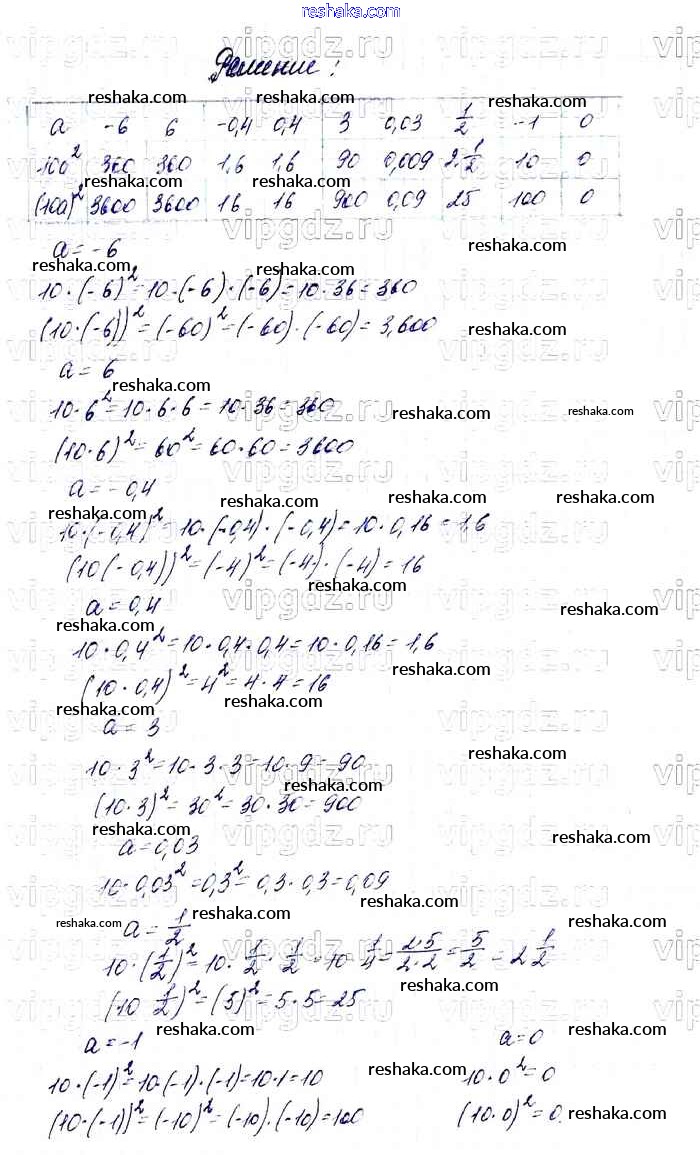 reshaka.com
Решение:
a -6 6 -0,4 0,4 3 0,03 1/2 -1 0
10a² 360 360 1,6 1,6 90 0,009 2 1/2 10 0
(10a)² 3600 3600 16 16 900 0,09 25 100 0
a = -6
10·(-6)²=10·(-6)·(-6)=10·36=360
(10·(-6))²=(-60)²=(-60)·(-60)=3,600
a = 6
10·6²=10·6·6=10·36=360
(10·6)²=60²=60·60=3600
a = -0,4
10·(-0,4)²=10·(-0,4)·(-0,4)=10·0,16=1,6
(10(-0,4))²=(-4)²=(-4)·(-4)=16
a = 0,4
10·0,4²=10·0,4·0,4=10·0,16=1,6
(10·0,4)²=4²=4·4=16
a = 3
10·3²=10·3·3=10·9=90
(10·3)²=30²=30·30=900
a=0,03
10·0,03²=0,3²=0,3·0,3=0,09
a = 1/2
10·(1/2)²=10·1/2·1/2=10·1/4=2·5/2·2=5/2=2 1/2
(10 1/2)²=(5)²=5·5=25
a = -1
10·(-1)²=10·(-1)·(-1)=10·1=10
(10·(-1))²=(-10)²=(-10)·(-10)=100
a=0
10·0²=0
(10·0)²=0.